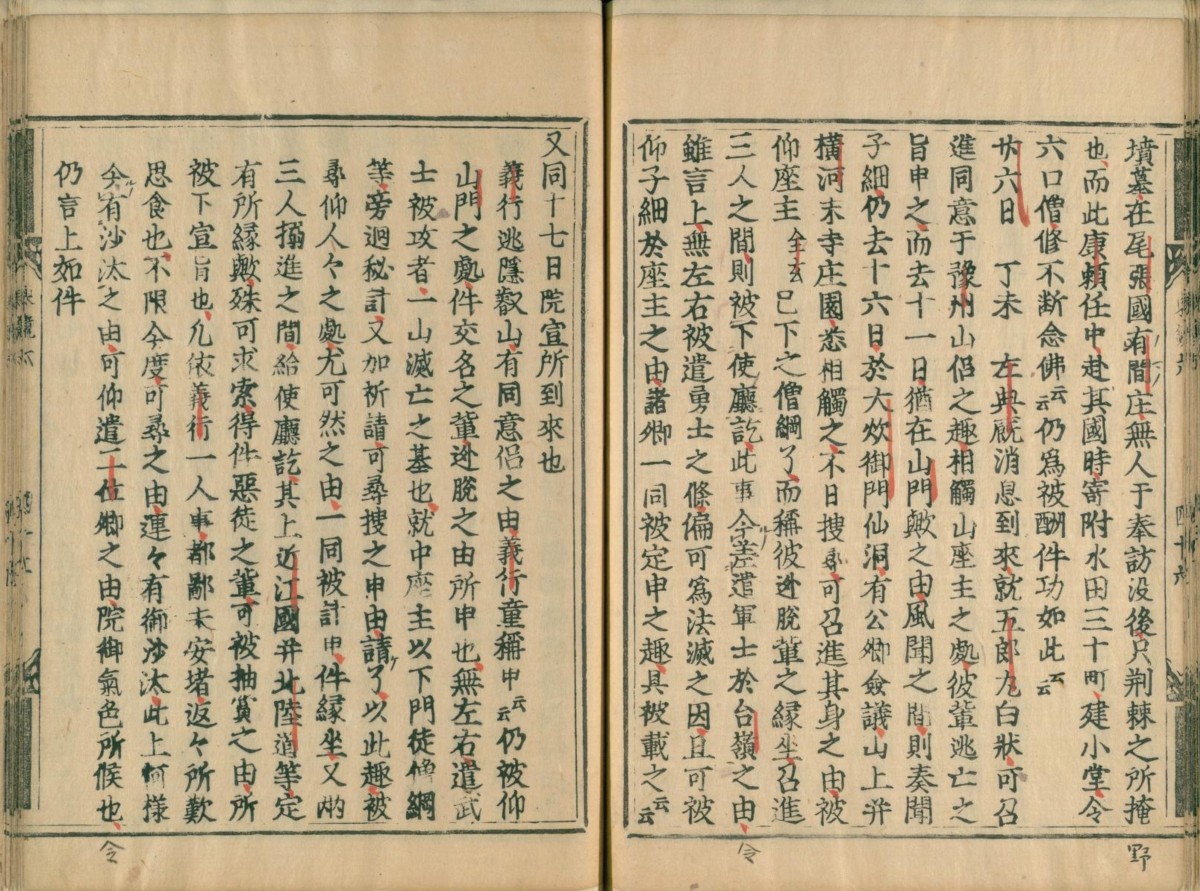 墳墓在尾張國有間庄無人于奉訪没後只荆棘之所掩
也而此康頼任中赴其國時寄附水田三十町建小堂令
六口僧修不断念佛云云仍為被酬件功如此云云
廿六日　丁未　左典厩消息到來就五郎丸白狀可召
進同意于豫州山侶之趣相觸山座主之處彼輩逃亡之
旨申之而去十一日猶在山門歟之由風聞之間則奏聞
子細仍去十六日於大炊御門仙洞有公卿僉議山上并
横河末寺庄園悉相觸之不日搜尋可召進其身之由被
仰座主全玄已下之僧綱了而稱彼逊脱輩之縁坐召進
三人之間則被下使廳訖此事令差遣軍士於台嶺之由
雖言上無左右被遣勇士之條偏可為法滅之因且可被
仰子細於座主之由諸卿一同被定申之趣具被載之云云
野
令
又同十七日院宣所到來也
義行逃隱叡山有同意侶之由義行童稱申云云仍被仰
山門之處件交名之輩逊脱之由所申也無左右遣武
士被攻者一山滅亡之基也就中座主以下門徒僧綱
等旁廻秘計又加祈請可尋搜之申由請了以此趣被
尋仰人々之處尤可然之由一同被計申件縁坐又兩
三人搦進之間給使廳訖其上近江國并北陸道等定
有所縁歟殊可求索得件惡徒之輩可被抽賞之由所
被下宣旨也凡依義行一人事都鄙未安堵返々所歎
思食也不限今度可尋之由連々有御沙汰此上何樣
令有沙汰之由可仰遣二位卿之由院御氣色所候也
仍言上如件
令